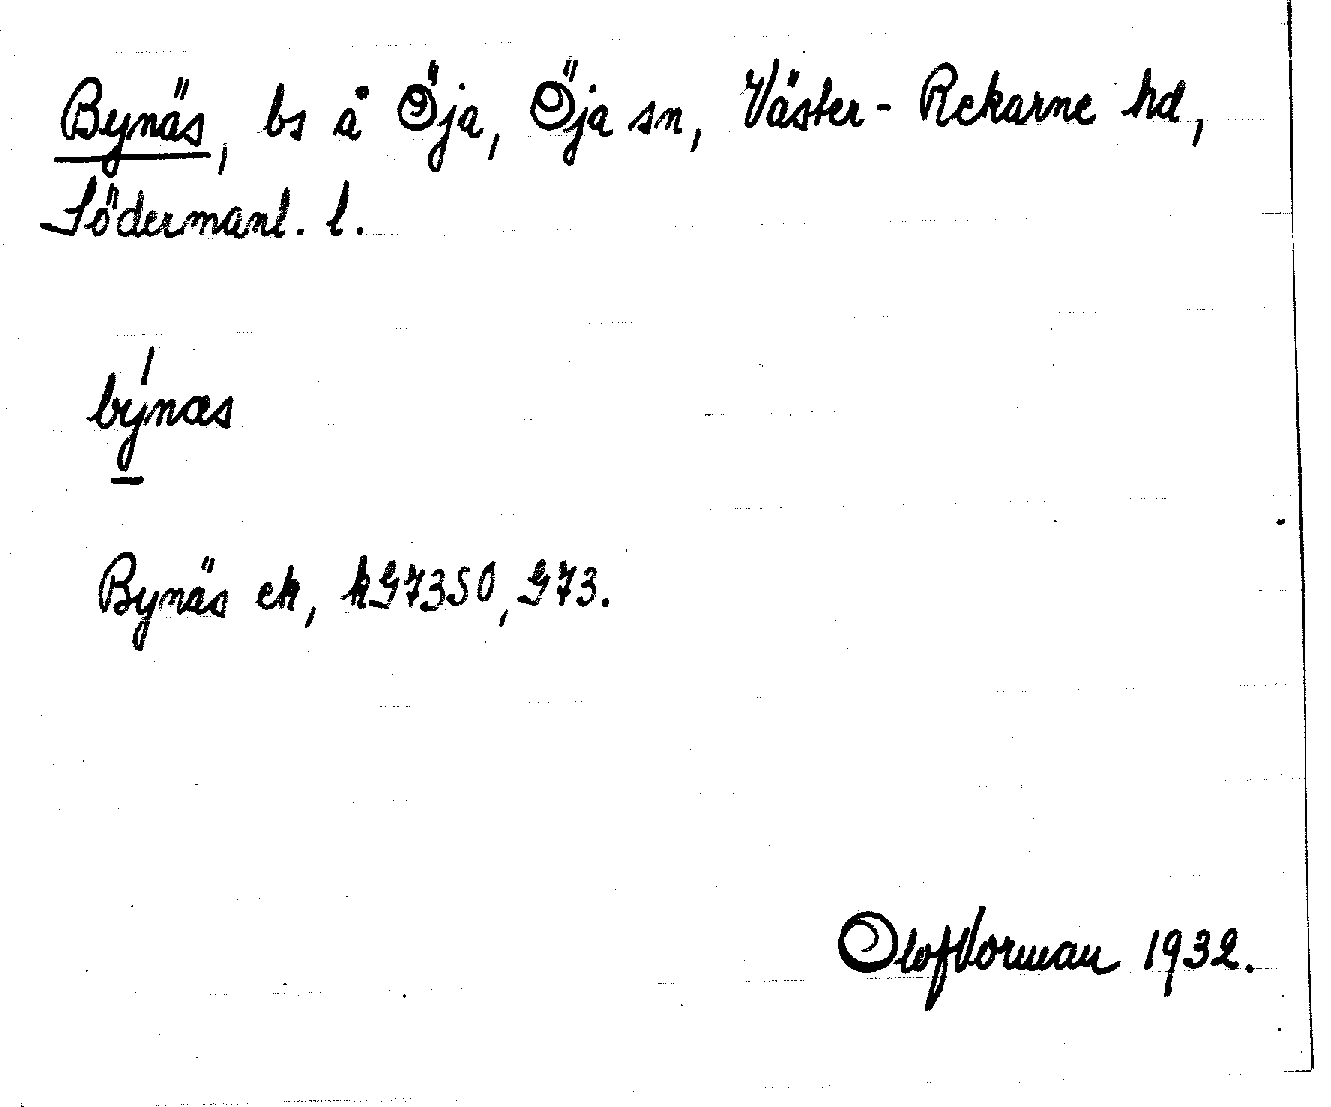 Bynäs, bs å Öja, Öja sn, Väster-Rekarne hd,
Södermanl. l.
býnæs
Bynäs ek, kG7350, G73.
Olof Vorman 1932.